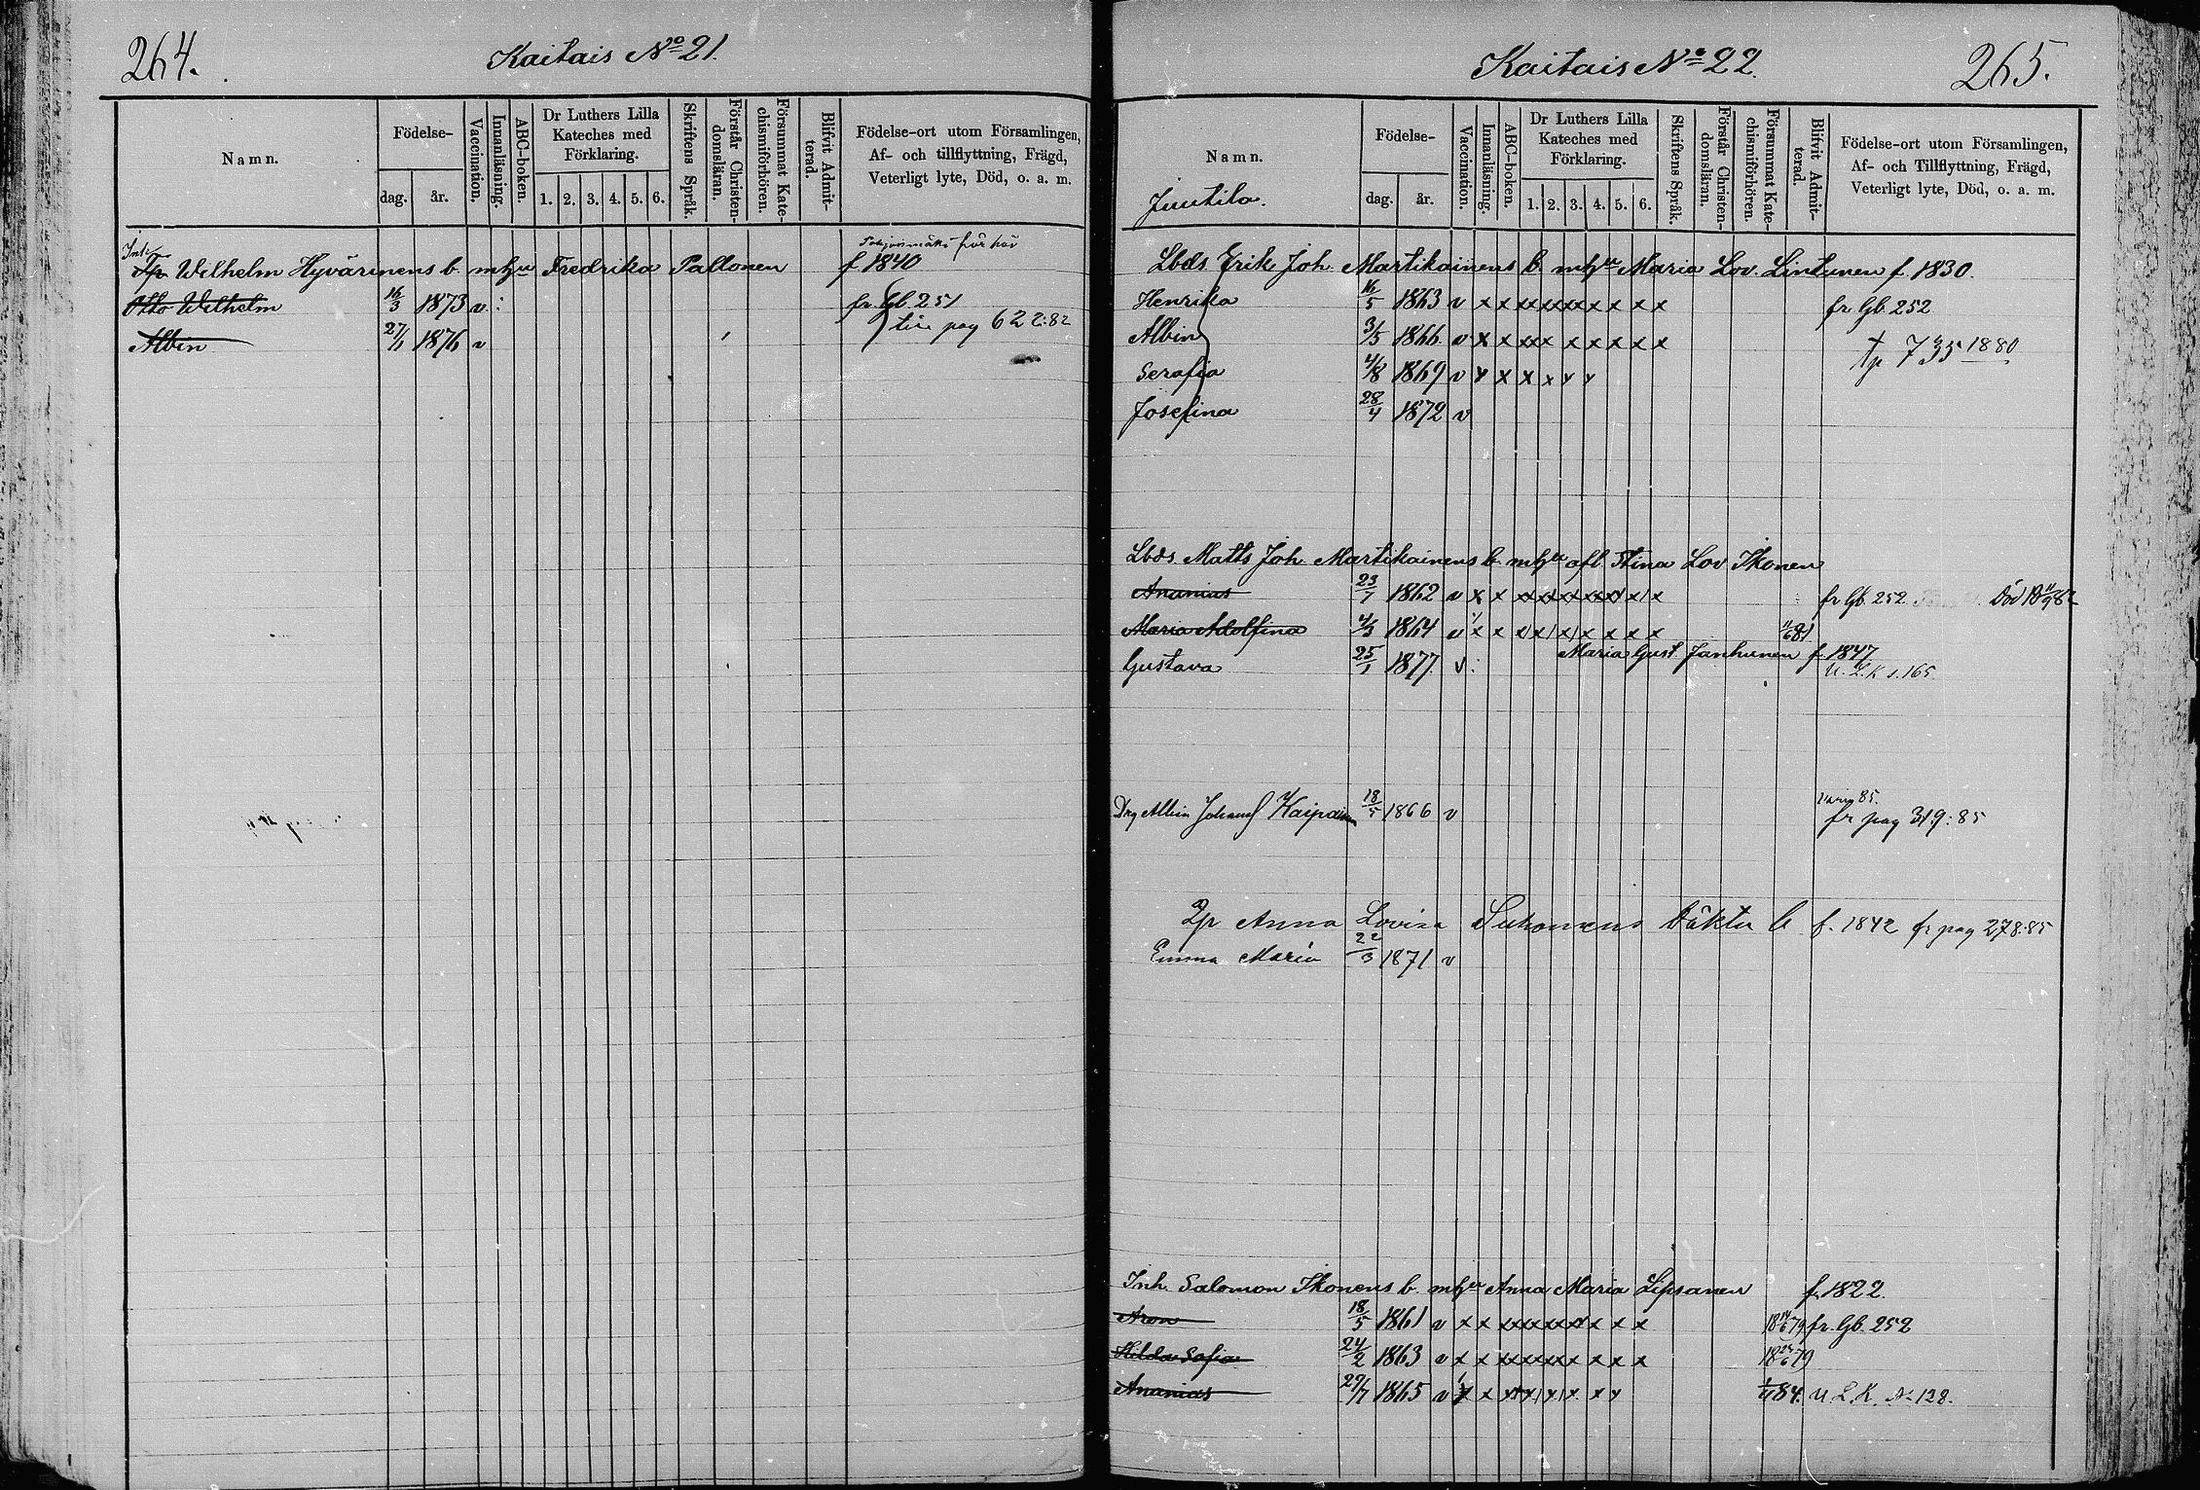 264.
Kaitais No 21.
Namn.
Födelse-
dag.
år.
Vaccination.
Innanläsning.
ABC-boken.
Dr Luthers Lilla
Kateches med
Förklaring.
1. 2. 3. 4. 5. 6.
Skriftens Språk.
Förstår Christen-
domsläran.
Försummat Kate-
chismiförhören.
Blifvit Admit-
terad.
Födelse-ort utom Församlingen,
Af- och tillflyttning, Frägd,
Veterligt lyte, Död, o. a. m.
Wilhelm Hyvärinens b. m hu Fredrika Pallonen f 1840
Otto Wilhelm 16/3 1873 v : fr Gb. 251
Albin 27/1 1876 v pag 622:82
Kaitais No 22.
265.
Namn.
Juutila.
Födelse-
dag.
år.
Vaccination.
Innanläsning.
ABC-boken.
Dr Luthers Lilla
Kateches med
Förklaring.
1. 2. 3. 4. 5. 6.
Skriftens Språk.
Förstår Christen-
domsläran.
Försummat Kate-
chismiförhören.
Blifvit Admit-
terad.
Födelse-ort utom Församlingen,
Af- och Tillflyttning, Frägd,
Veterligt lyte, Död, o. a. m.
Lbds Erik Joh. Martikainens b. m hu Maria Lov. Lintunen f. 1830.
Henrika 16/5 1863 v x x xx xx xx x x x x fr Gb. 252
Albin 3/5 1866 v x x xx x x x x x x 735 1880
Serafia 4/8 1869 v x x x x x x
Josefina 28/4 1872 v
Lbds. Matts Joh. Martikainens b. m hu afl. Stina Lov Ikonen
Ananias 23/1 1862 v x x xx xx xx xx x x fr Gb. 252 Död
Maria Adolfina 4/3 1864 v x x x x x x x x x
Maria Gust. Janhunen f. 1847
Gustava 25/1 1877. v : U. L. K s. 165
Drg Albin Johans Kaipainen 18/5 1866 v fr pag 319:85
Anna Lovisa Suhonens b f. 1842 fr pag 278:85
Emma Maria 22/3 1871 v
Inh. Salomon Ikonens b. m hu Anna Maria Lipsanen f. 1822.
Aron 18/5 1861 v x x xx xx xx x x x fr. Gb. 252
Hilda Sofia 24/2 1863 v x x xx xx xx x x x
Ananias 29/7 1865 v x x x x x x x x 84. U. L. K. N 128.